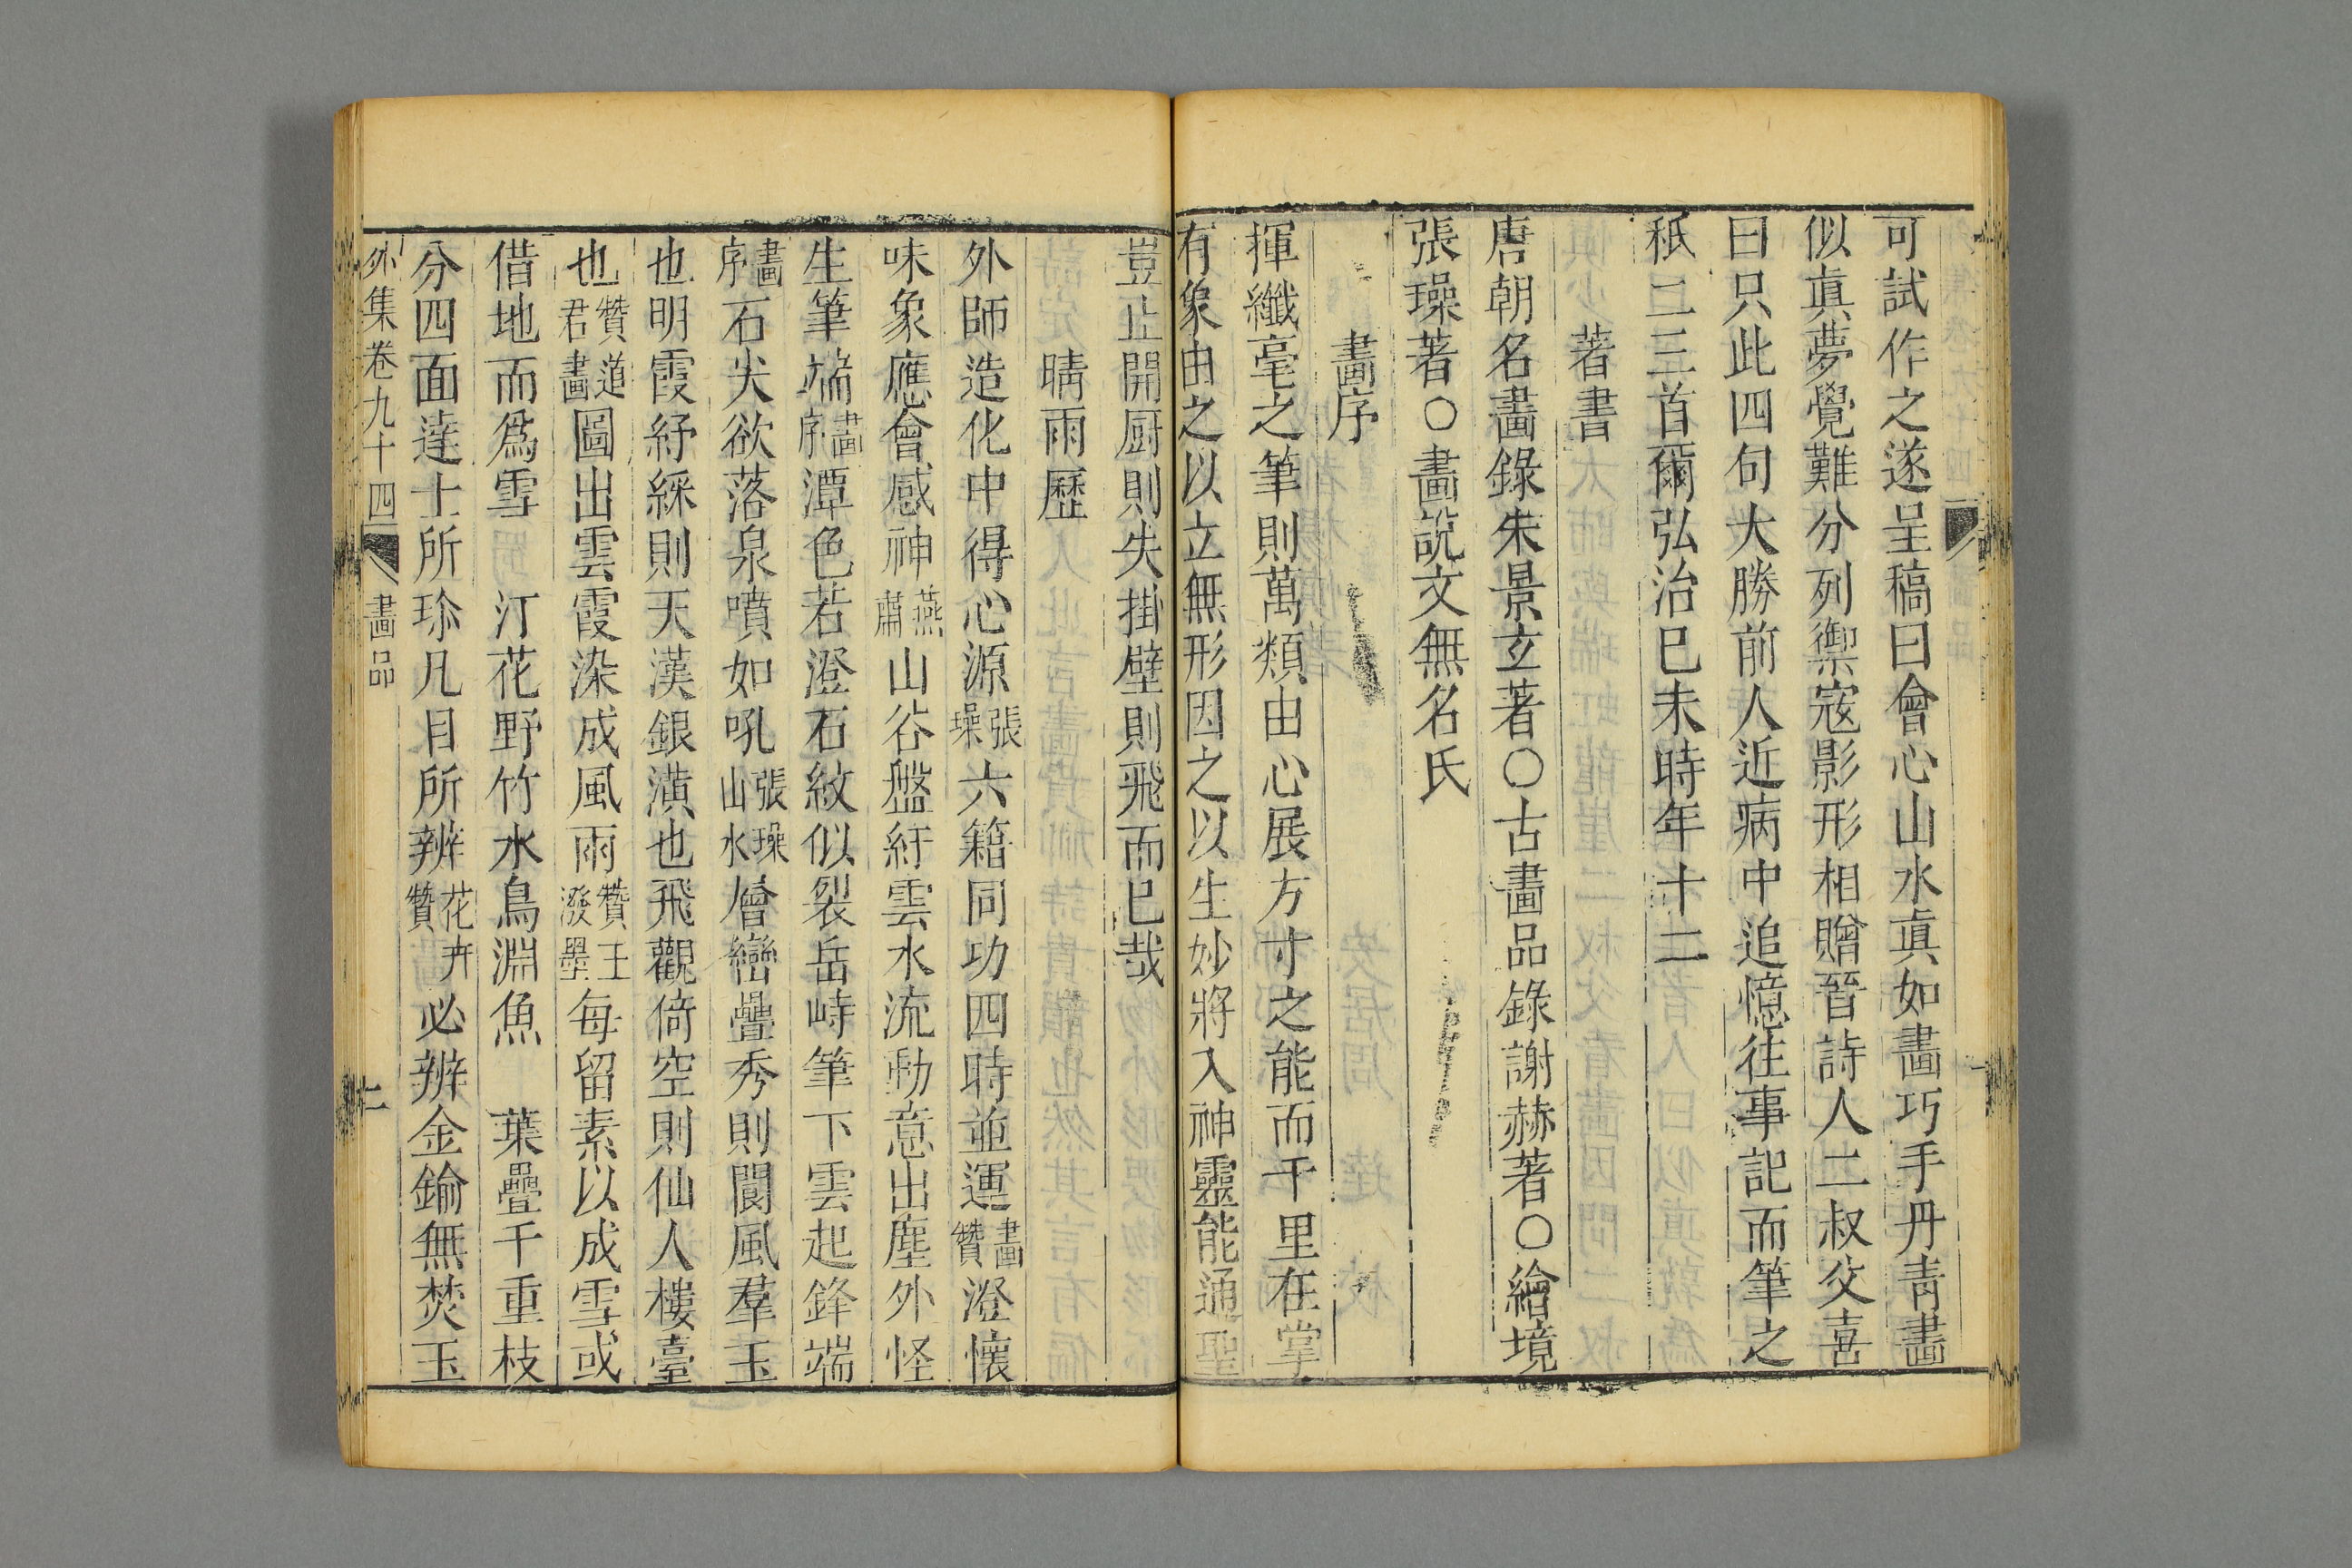 可試作之遂呈稿曰會心山水眞如畫巧手丹青畫
似眞夢覺難分列禦寇影形相贈晉詩人二叔父喜
曰只此四句大勝前人近病中追憶往事記而筆之
秪二三首爾弘治巳未時年十二
著書
唐朝名畫錄朱景玄著○古畫品錄謝赫著○繪境
張璪著○畫說文無名氏
畫序
揮纖毫之筆則萬類由心展方寸之能而千里在掌
有象由之以立無形因之以生妙將入神靈能通聖
豈止開厨則失掛壁則飛而巳哉
晴雨歷
外師造化中得心源張璪六籍同功四時並運畫贊澄懷
味象應會感神燕肅山谷盤紆雲水流動意出塵外怪
生筆端畫序潭色若澄石紋似裂岳峙筆下雲起鋒端
畫序石尖欲落泉噴如吼張璪山水層巒疊秀則閬風羣玉
也明霞紓綵則天漢銀潢也飛觀倚空則仙人樓臺
也贊道君畫圖出雲霞染成風雨贊王潑墨每留素以成雪或
借地而爲雪汀花野竹水鳥淵魚葉疊千重枝
分四面達士所珍凡目所辨花卉贊必辨金鍮無焚玉
外集卷九十四
畫品